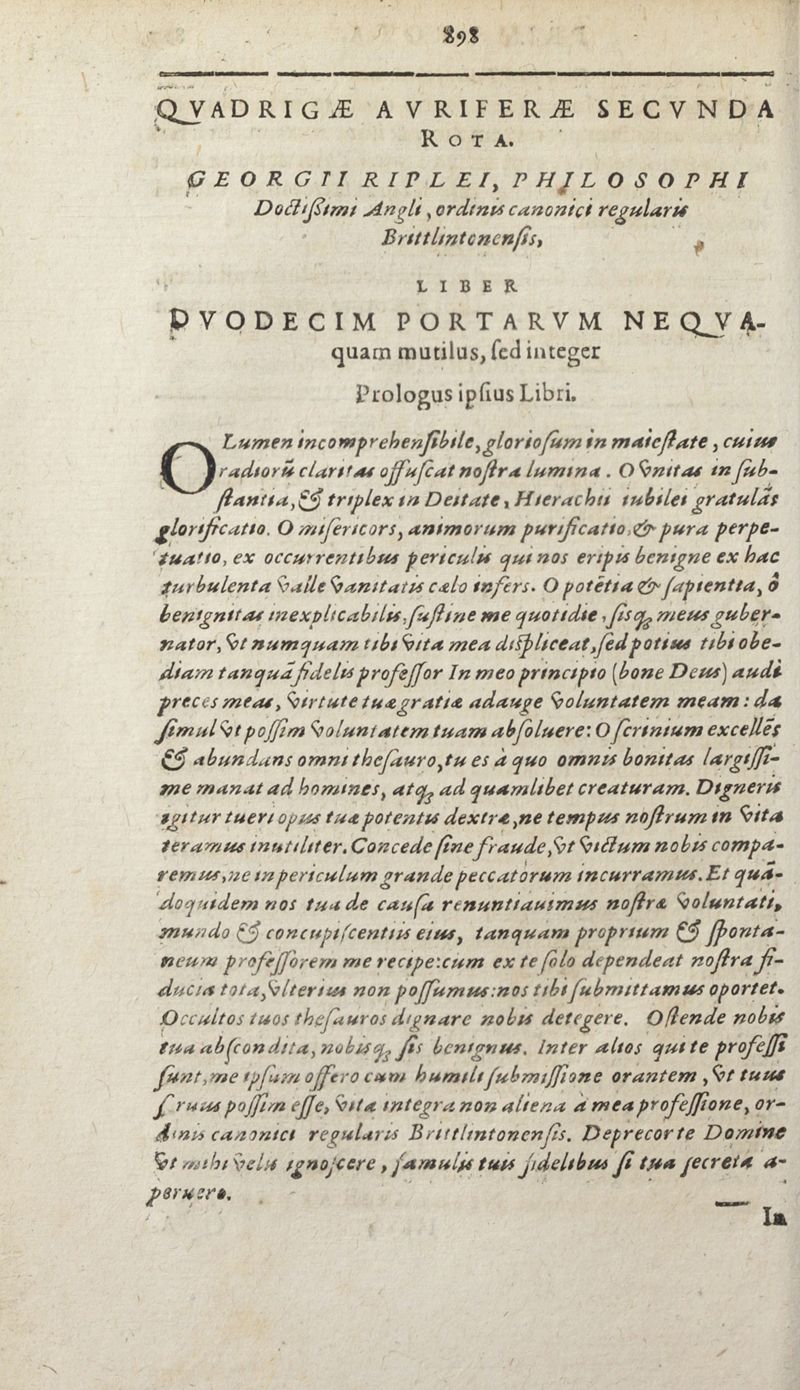 898
QVADRIGÆ AVRIFERÆ SECVNDA
ROTA.
GEORGII RIPLEI, PHILOSOPHI
Doctißimi Angli, ordinis canonici regularis
Brittlintonensis,
LIBER
DVODECIM PORTARVM NEQVA-
quam mutilus, sed integer
Prologus ipsius Libri.
O Lumen incomprehensibile, gloriosum in maiestate, cuius
radiorũ claritas offuscat nostra lumina. O vnitas in sub-
stantia, & triplex in Deitate, Hierachii iubilei gratulãs
glorificatio. O misericors, animorum purificatio, & pura perpe-
tuatio, ex occurrentibus periculis qui nos eripis benigne ex hac
turbulenta valle vanitatis cælo infers. O potẽtia & sapientia, ô
benignitas inexplicabilis, sustine me quotidie, sisq; meus guber-
nator, vt numquam tibi vita mea displiceat, sed potius tibi obe-
diam tanquã fidelis professor In meo principio (bone Deus) audi
preces meas, virtute tuæ gratiæ adauge voluntatem meam: da
simul vt possim voluntatem tuam absoluere: O scrinium excellẽs
& abundans omni thesauro, tu es à quo omnis bonitas largissi-
me manat ad homines, atq; ad quamlibet creaturam. Digneris
igitur tueri opus tuæ potentis dextræ, ne tempus nostrum in vita
teramus inutiliter. Concede sine fraude, vt victum nobis compa-
remus, ne in periculum grande peccatorum incurramus. Et quã-
doquidem nos tua de causa renuntiauimus nostræ voluntati,
mundo & concupiscentiis eius, tanquam proprium & sponta-
neum professorem me recipe: cum ex te solo dependeat nostra fi-
ducia tota, vlterius non possumus: nos tibi submittamus oportet.
Occultos tuos thesauros dignare nobis detegere. Ostende nobis
tua abscondita, nobisq; sis benignus. Inter alios qui te professi
sunt, me ipsum offero cum humili submissione orantem, vt tuus
seruus possim esse, vita integra non aliena à mea professione, or-
dinis canonici regularis Brittlintonensis. Deprecor te Domine
vt mihi velis ignoscere, famulis tuis fidelibus si tua secreta a-
peruero.
In